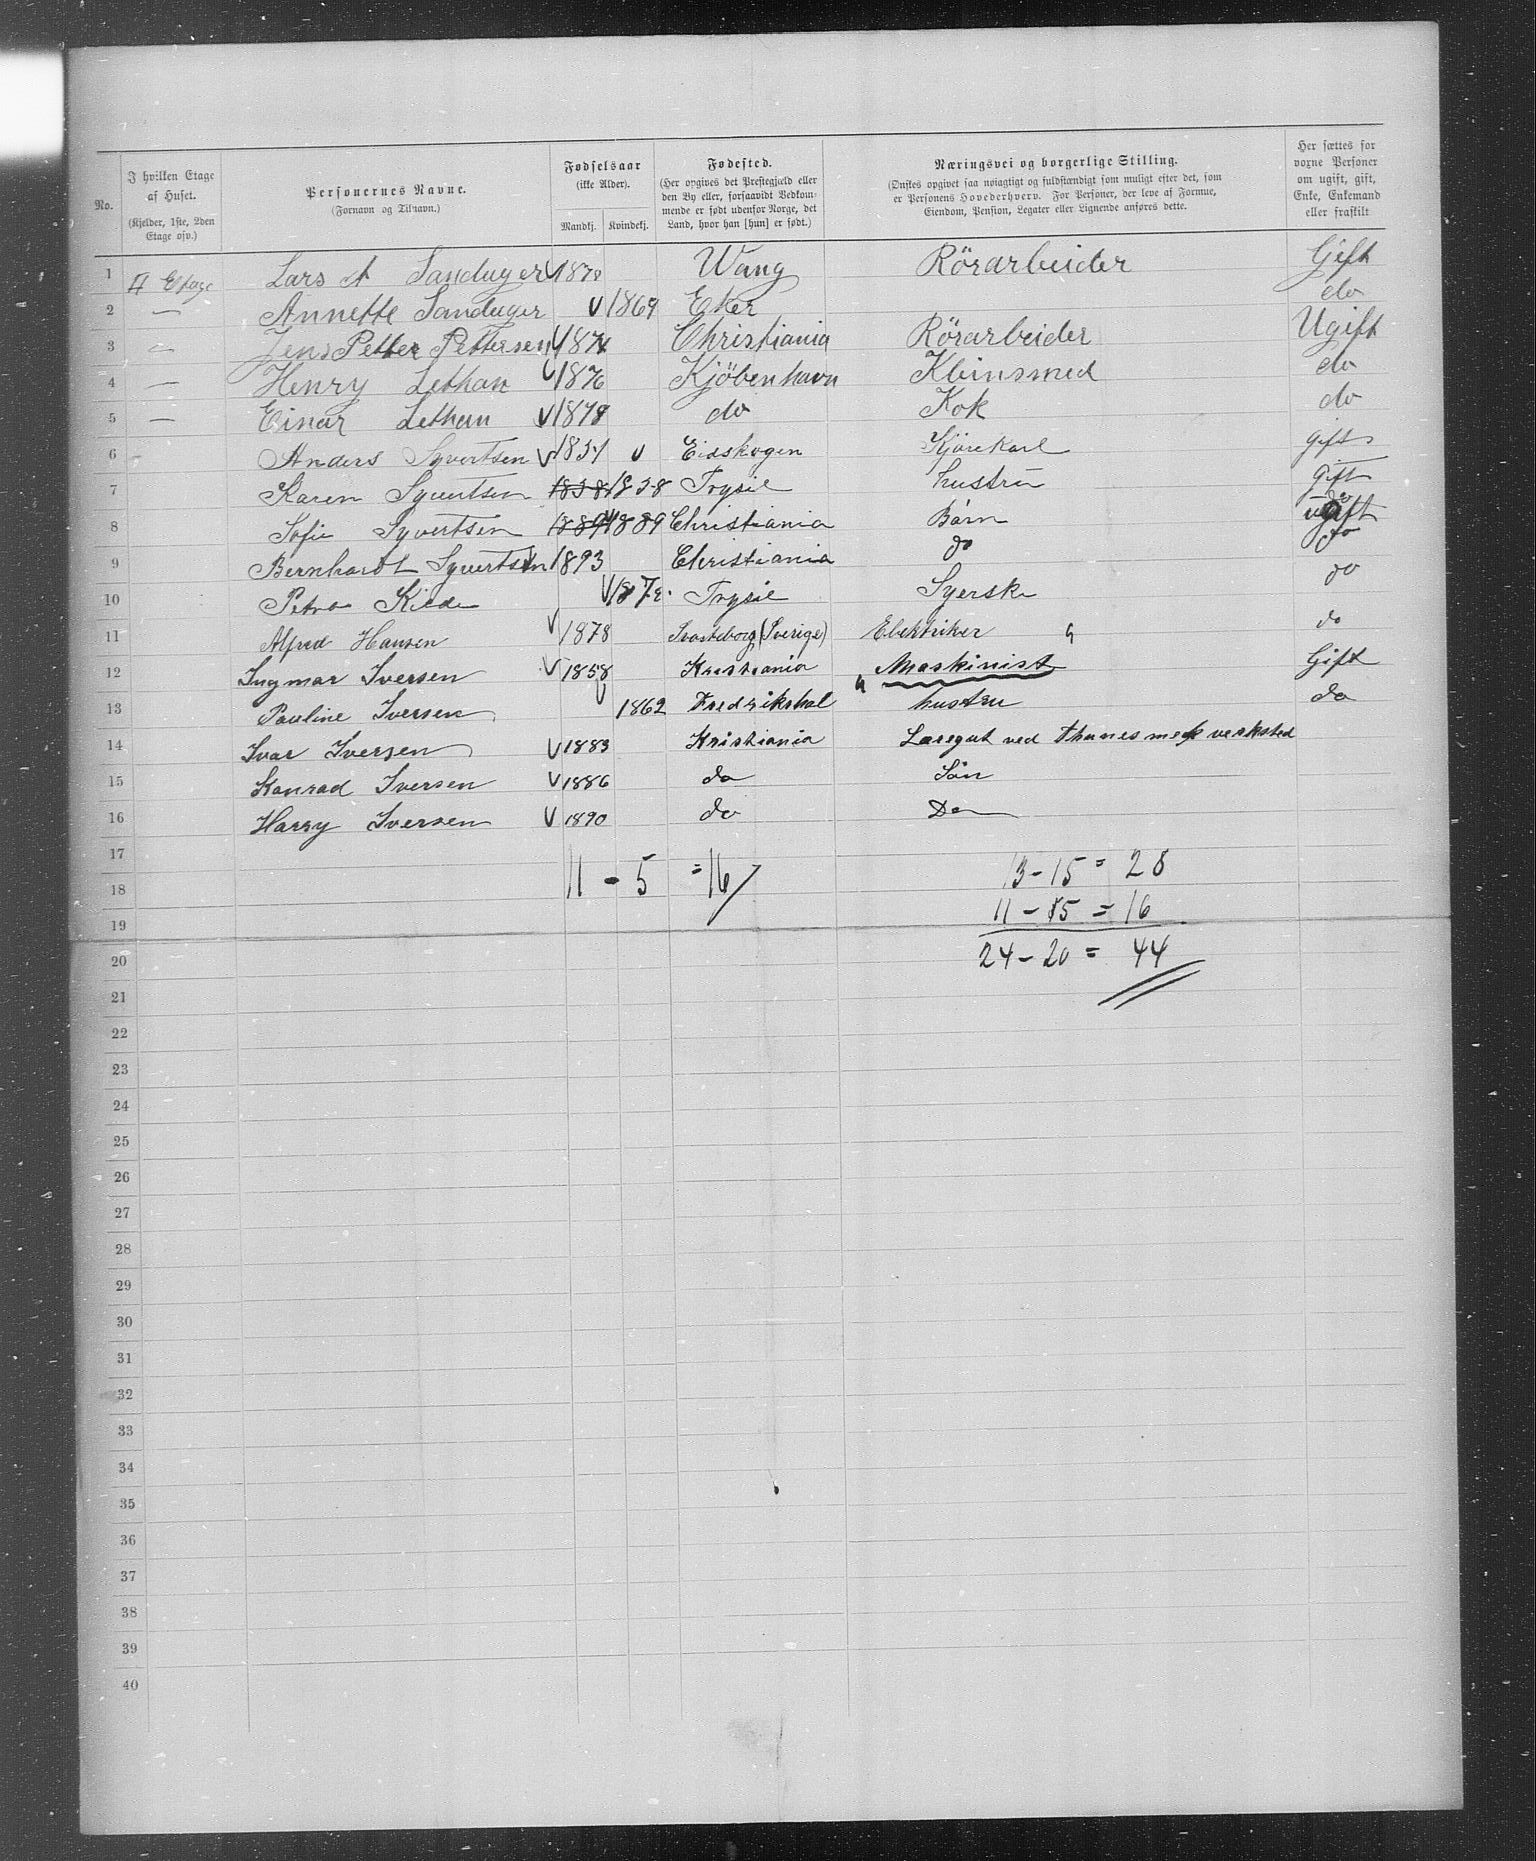 No.
I hvilken Etage af Huset.
(Kjelder, 1ste, 2den Etage osv.)
Personernes Navne.
(Fornavn og Tilnavn.)
Fødselsaar
(ikke Alder).
Mandkj. Kvindekj.
Fødested.
(Her opgives det Prestegjæld eller
den By eller, forsaavidt Vedkom-
mende er født udenfor Norge, det
Land, hvor han [hun] er født.)
Næringsvei og borgerlige Stilling.
(Ønskes opgivet saa nøiagtigt og fuldstændigt som muligt efter det, som
er Personens Hovederhverv. For Personer, der leve af Formue,
Eiendom, Pension, Legater eller Lignende anføres dette.
Her sættes for
voxne Personer
om ugift, gift,
Enke, Enkemand
eller fraskilt
1 II Etage Lars A Sanduger 1878 Wang Rörarbeider Gift
2 — Annette Sanduger 1869 Eker do
3 — Jens Petter Pettersen 1874 Christiania Rörarbeider Ugift
4 — Henry Lethan 1876 Kjöbenhavn Kleinsmed do
5 — Einar Lethan 1878 do Kok do
6 Anders Syvertsen 1837 Eidskogen Kjörekarl gift
7 Karen Syvertsen 1838 1838 Trysil hustru Gift
8 Sofie Syvertsen 1889 1889 Christiania Børn ugift
9 Bernhardt Syvertsen 1893 Christiania do do
10 Petra Kilde 187 Trysil Syerske do
11 Alfred Hansen 1878 (Sverige) Elektriker do
12 Ingmar Iversen 1858 Kristiania Maskinist Gift
13 Pauline Iversen 1862 Fredrikshal hustru do
14 Ivar Iversen 1883 Kristiania Læregut ved Thunes mek verksted
15 Konrad Iversen 1886 do Sön
16 Harry Iversen 1890 do Do
17
11 - 5 = 16
13 - 15 = 28
18
11 - 5 = 16
19
24 - 20 = 44
20
21
22
23
24
25
26
27
28
29
30
31
32
33
34
35
36
37
38
39
40